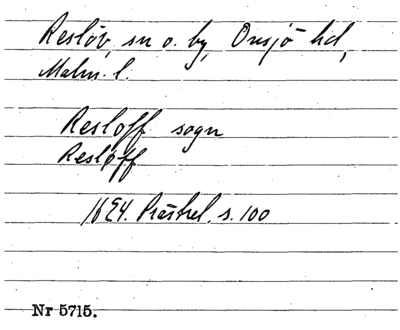 Reslöv, sn o. by, Onsjö hd,
Malm. l.
Resloff sogn
Resløff
1624. Prästrel. s. 100
Nr 5715.